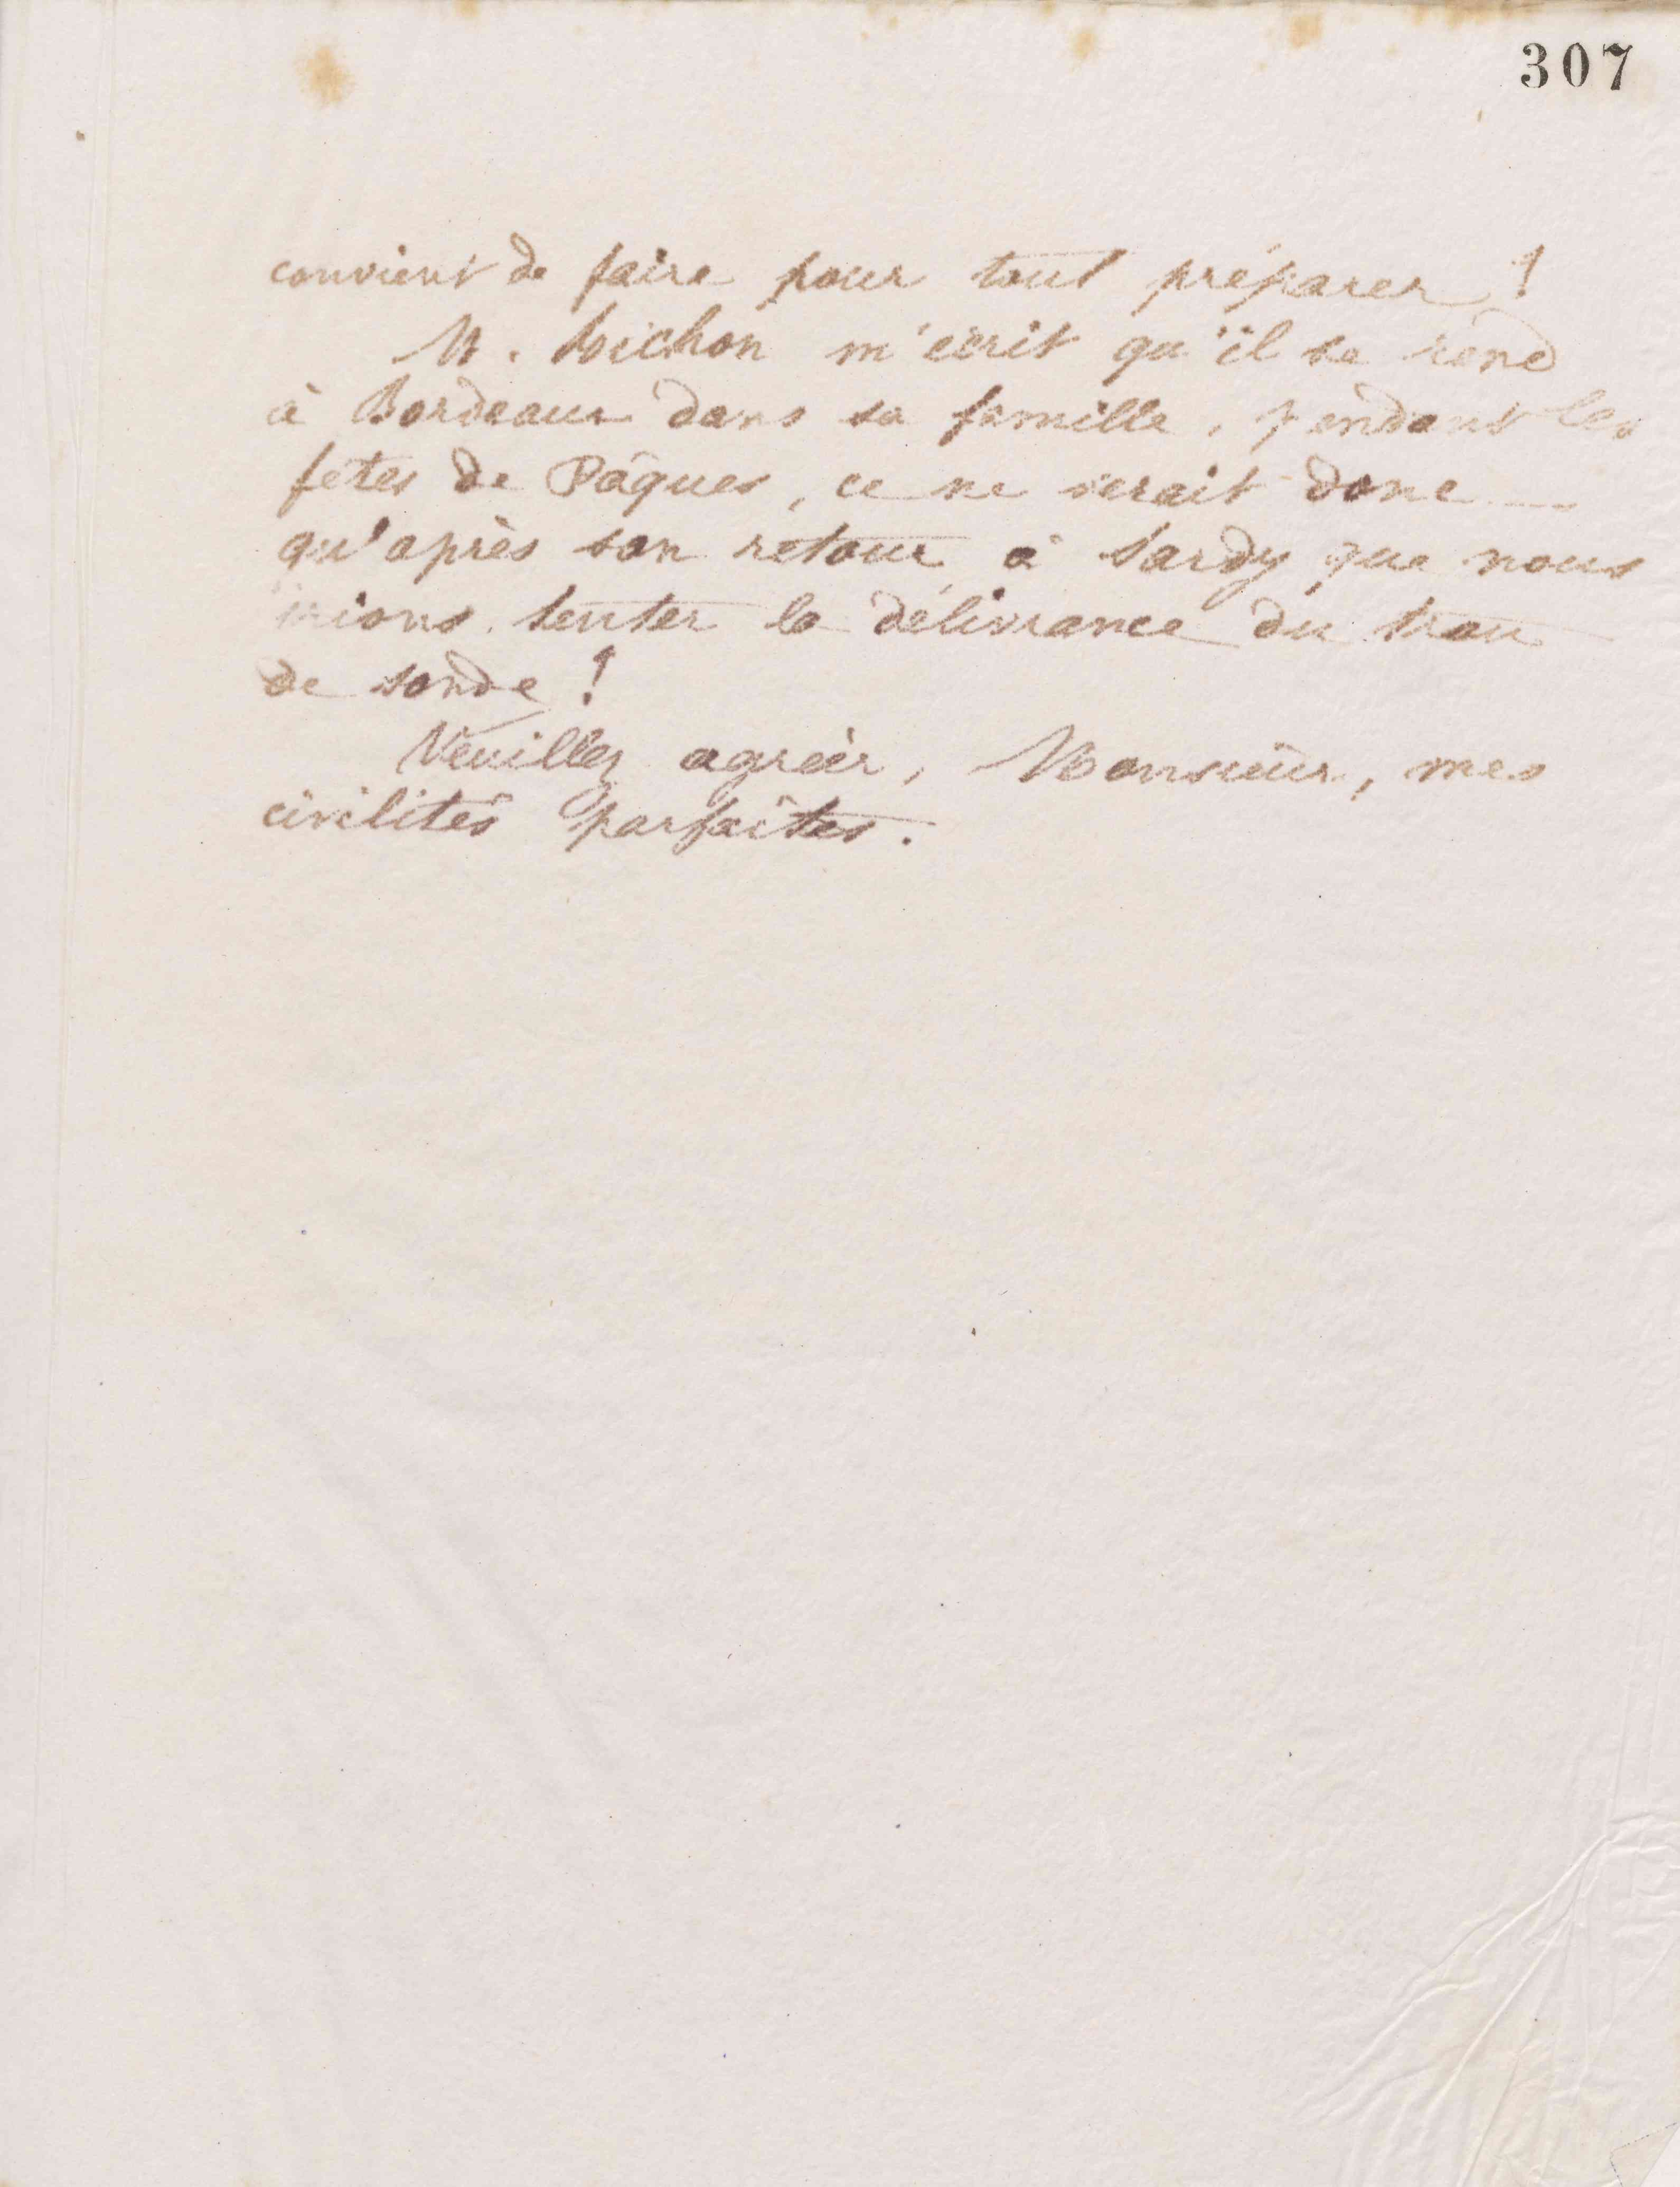 307
convient de faire pour tout préparer !
M. Michon m'écrit qu'il se rend
à Bordeaux dans sa famille, pendant les
fêtes de Pâques, ce ne serait donc
qu'après son retour à Sardy que nous
irions tenter la délivrance du trou
de sonde !
Veuillez agréer, Monsieur, mes
civilités parfaites.